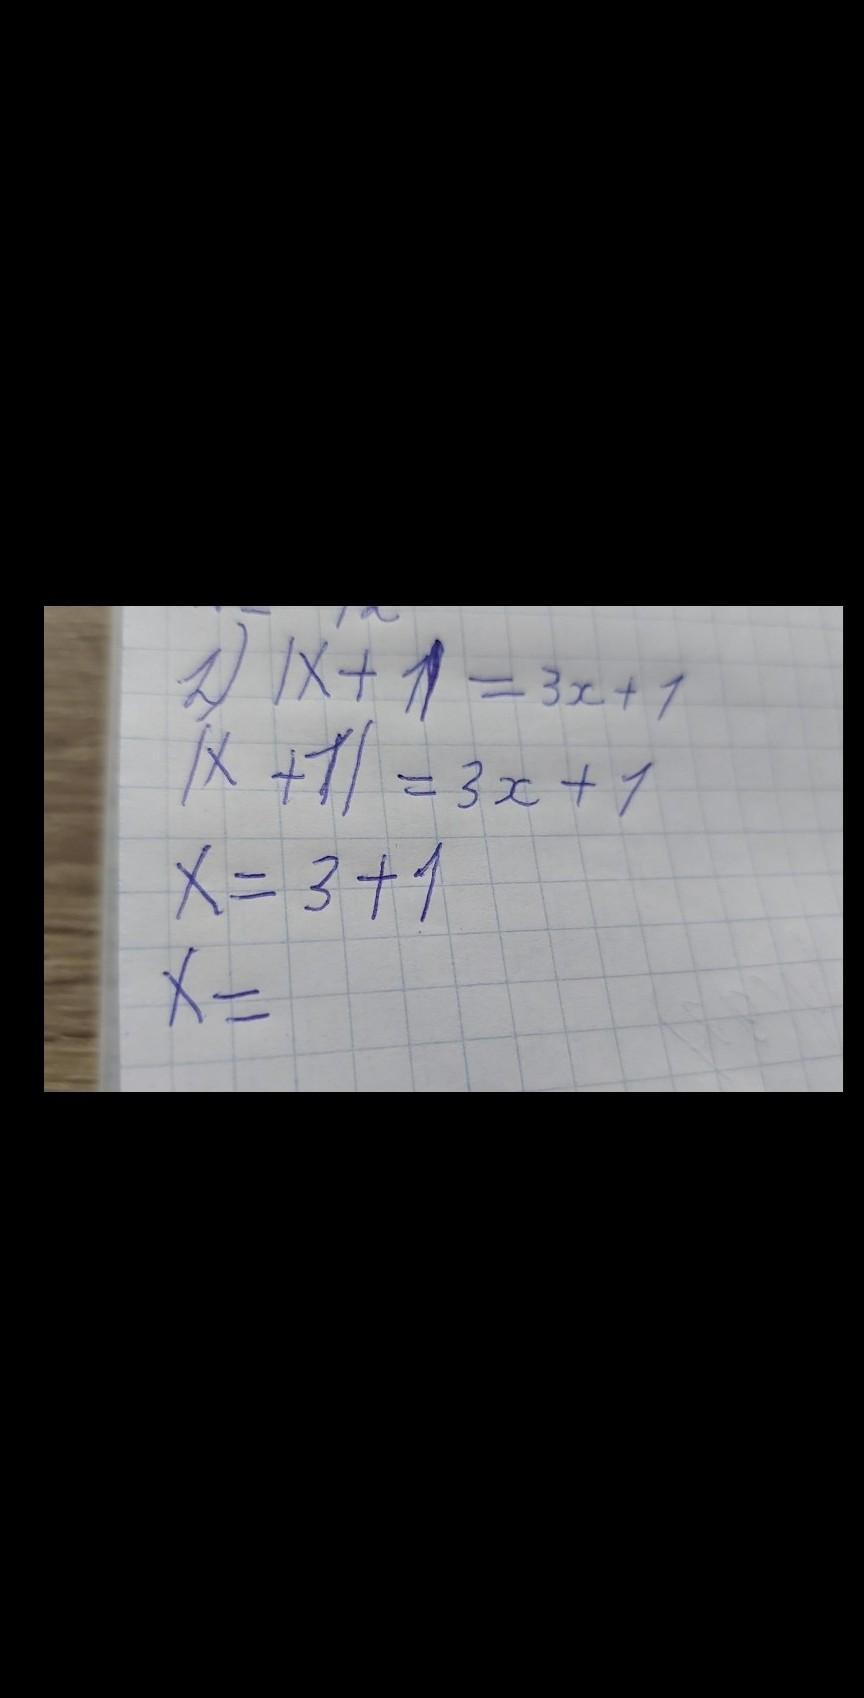 2) |x + 1| = 3x + 1
|x + 1| = 3x + 1
x = 3 + 1
x =